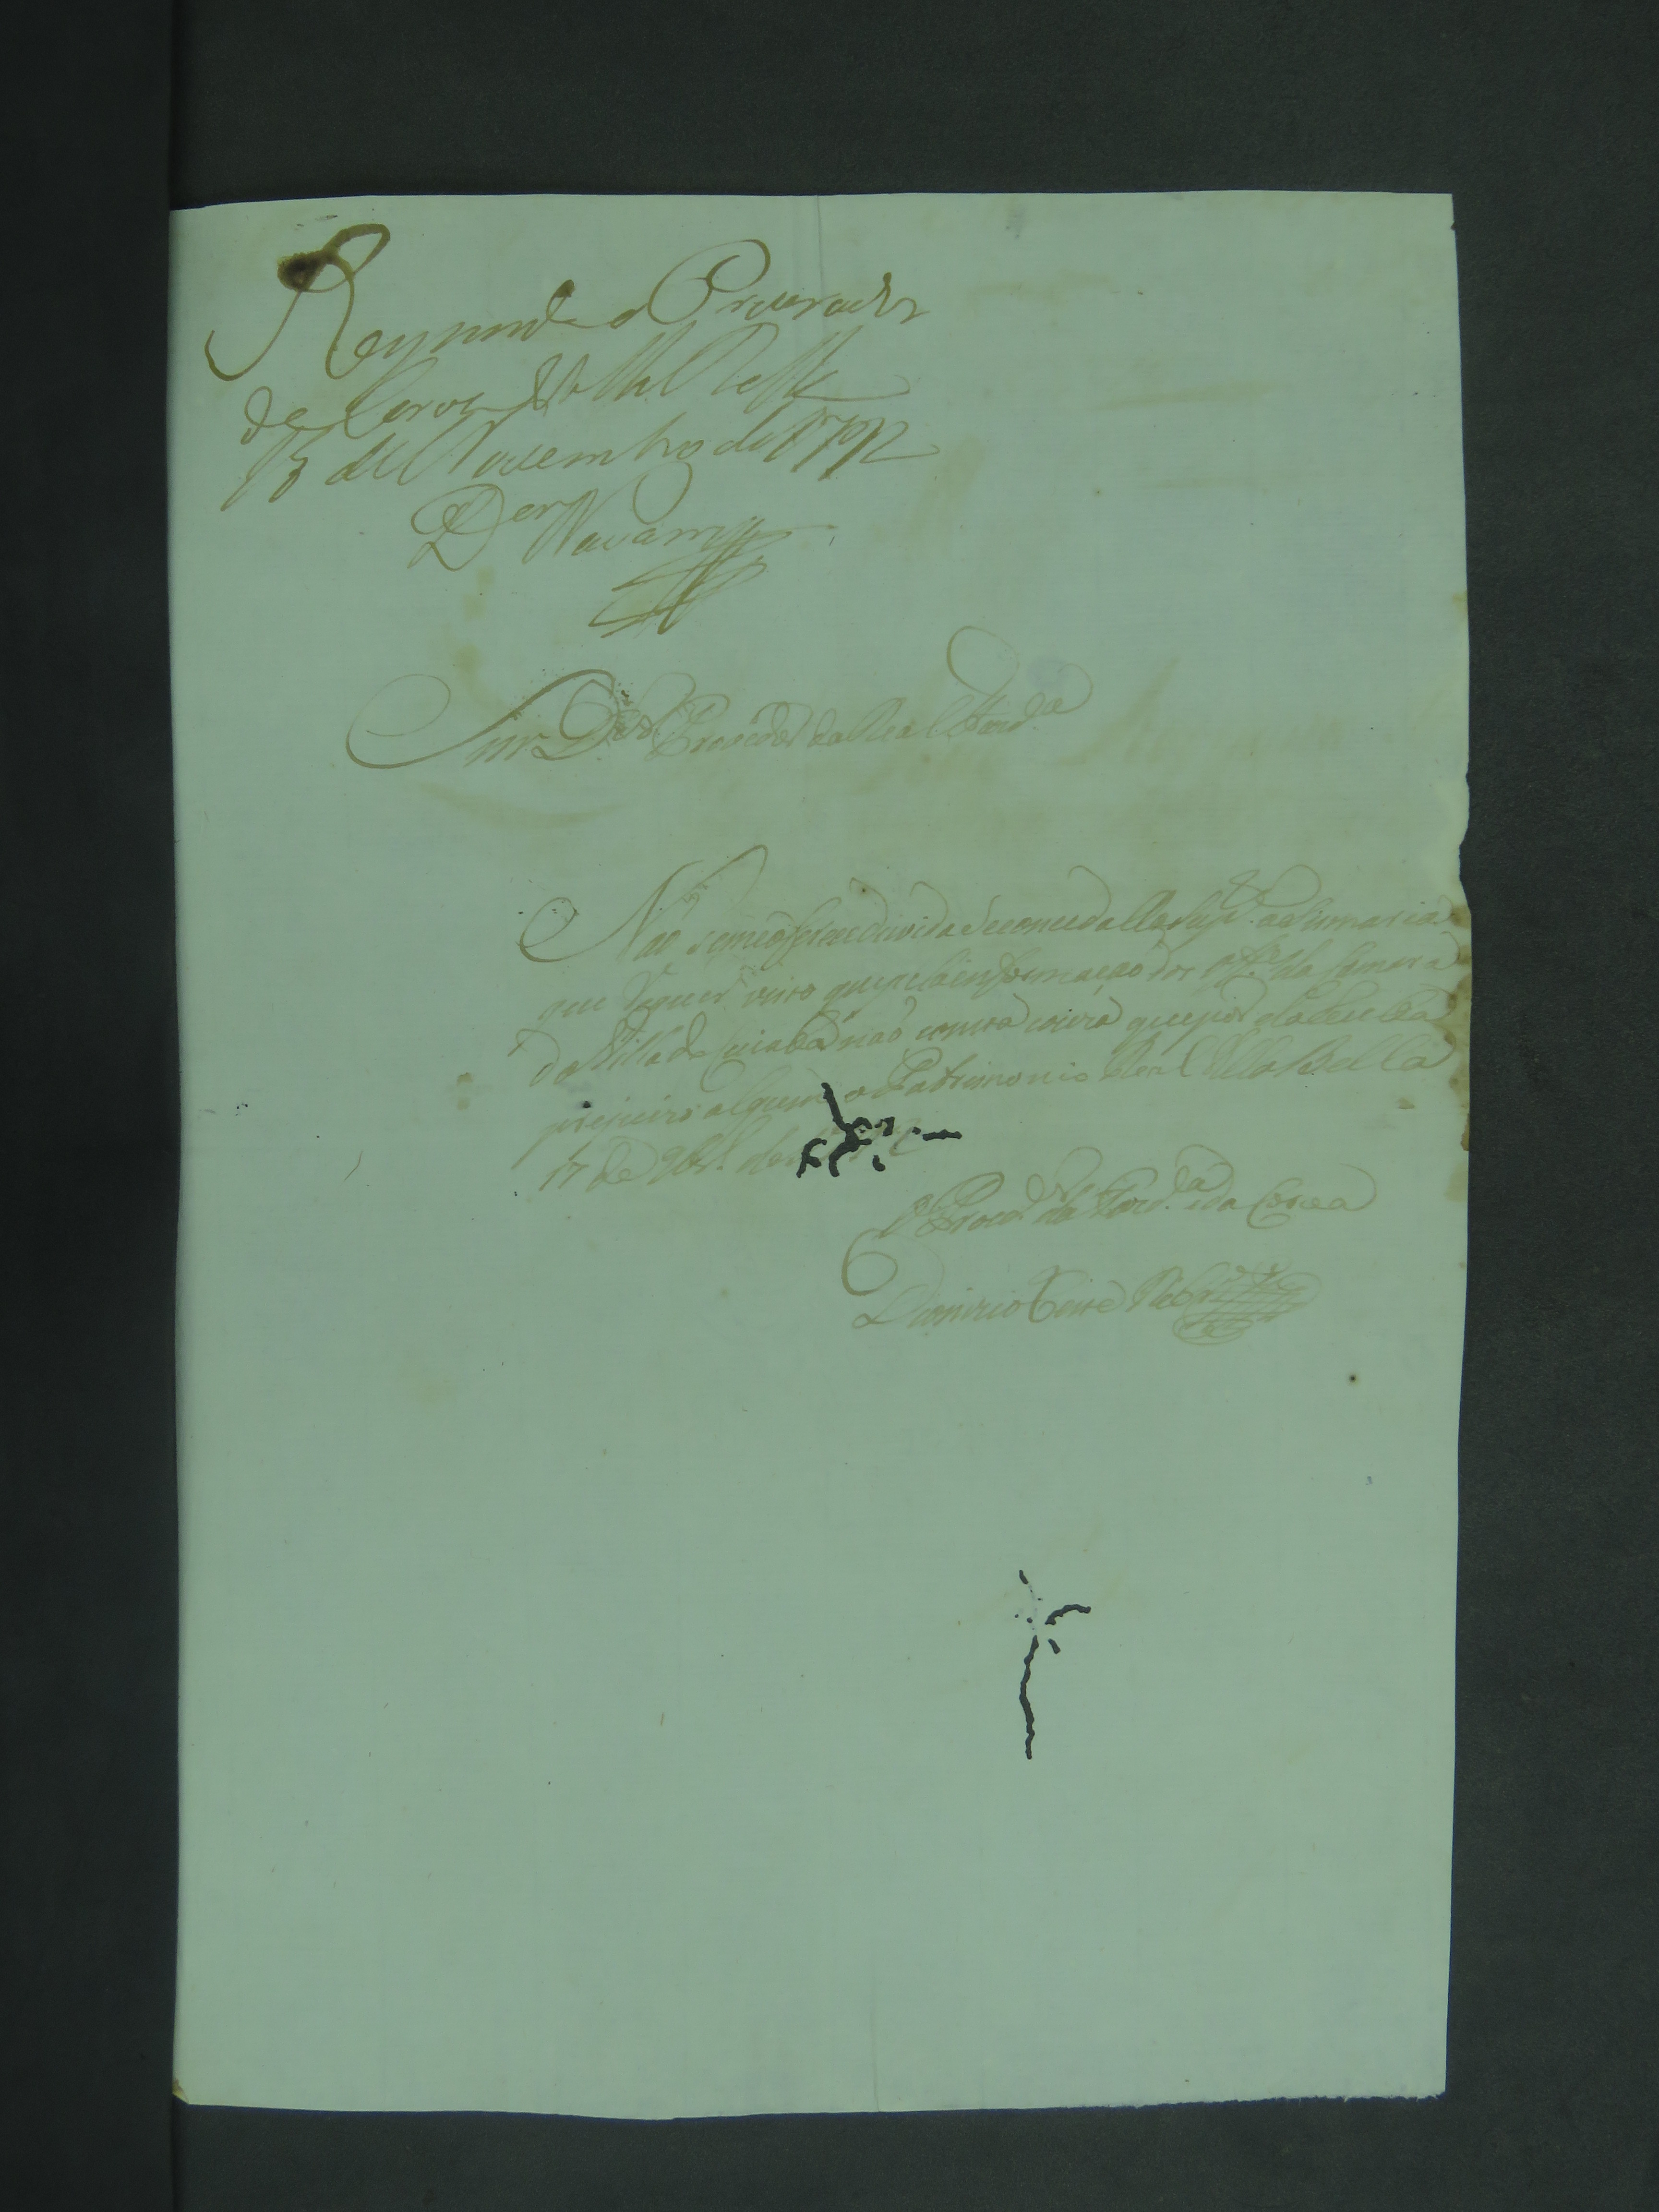 Responda o Procurador
da Coroa Villa Bella
13 de Novembro de 1792
Navarro
Snr. D.or Provedor da Real Fazd.a
Não se me oferece duvida se conceda ao Sup.e a Sismaria
que requer visto que pela informação dos off.es da Camara
da Villa do Cuiabá não consta couza que por ella receba
prejuizo algum o Patrimonio Real Villa Bella
17 de 9br.o de
O Procor. da Fazd.a e da Coroa
Dionizio